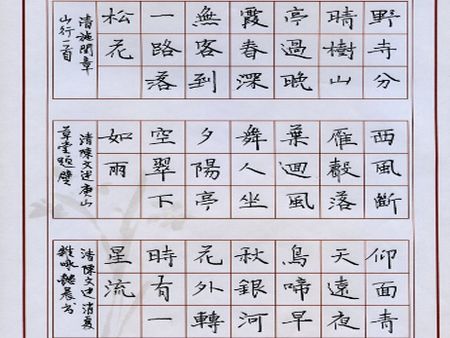 野寺分
晴樹山
亭過晚
霞春深
無客到
一路落
松花
清施閏章
山行一首
西風斷
雁聲落
葉迴風
舞人坐
夕陽亭
空翠下
如雨
清陳文述
草堂題壁
仰面青
天遠夜
鳥啼早
秋銀河
花外轉
時有一
星流
清陳文述消夏